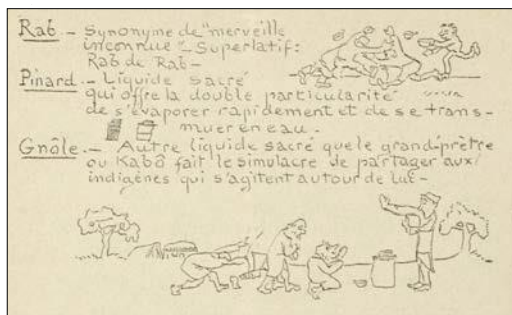 Rab.- Synonyme de "merveille
inconnue"- Superlatif:
Rab de Rab-
Pinard.- Liquide sacré
qui offre la double particularité
de s'évaporer rapidement et de se trans-
muer en eau.
Gnôle.- Autre liquide sacré que le grand-prêtre
ou Kabô fait le simulacre de partager aux
indigènes qui s'agitent autour de lui-